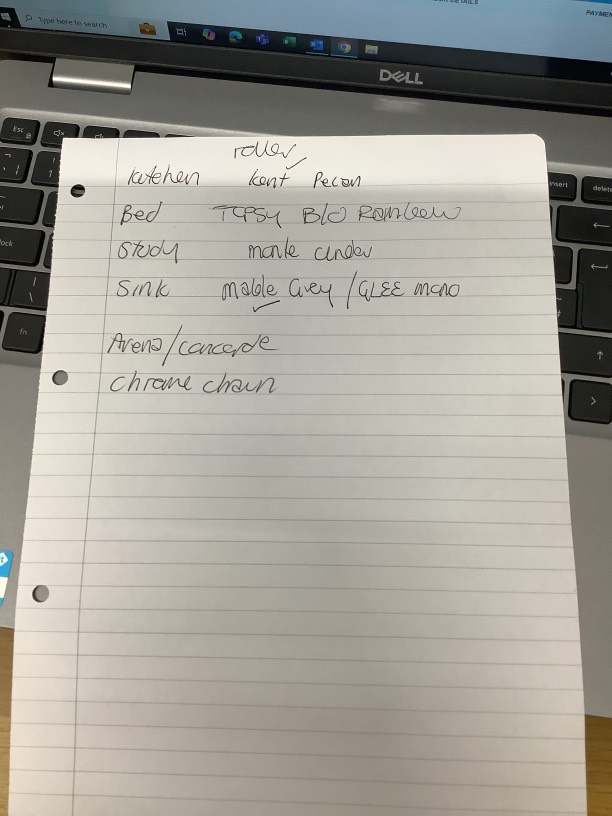 Type here to search
PAYMEN
DELL
Esc
insert
delete
lock
fn
roller ✓
Kitchen Kent Pecan
Bed TOPSY B/O Rainbow
Study monte cinder
Sink mable Grey / GLEE mono
✓
Arena/concorde
Chrome chain